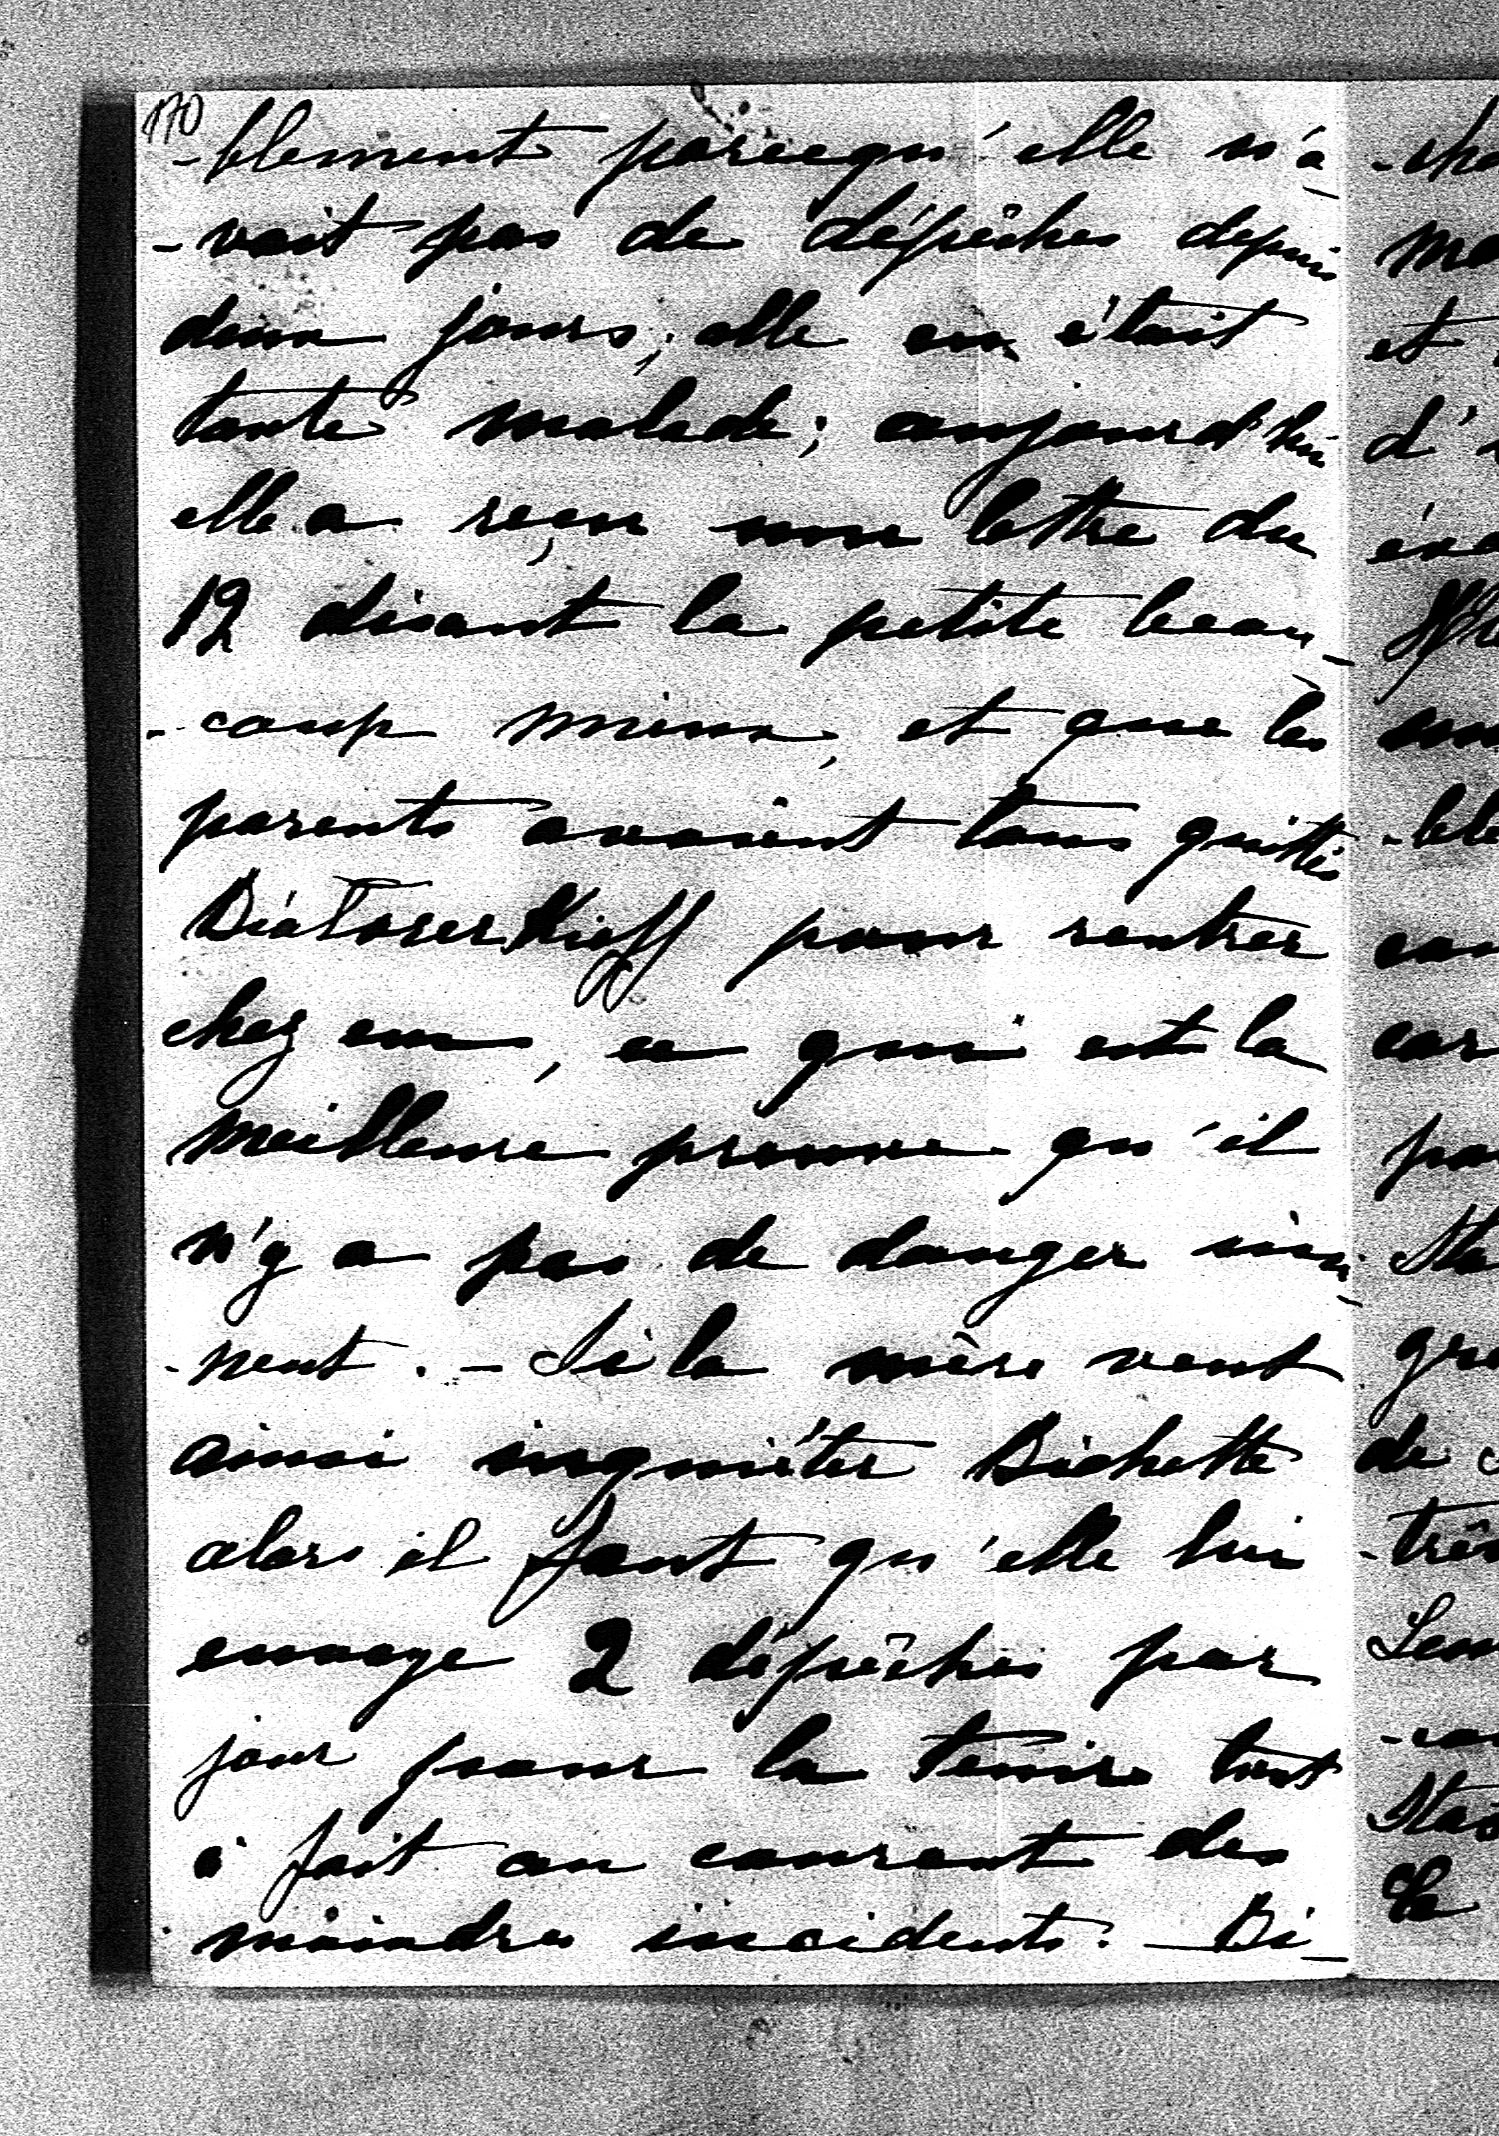 170
-blement parcequ'elle n'a-
-vait pas de dépêches depuis
deux jours; elle en était
toute malade; aujourd'hui
elle a reçu une lettre du
12 disant la petite beau-
-coup mieux, et que les
parents avaient tous quittés
Biáloserkieff pour rentrer
chez eux, ce qui est la
meilleure preuve qu'il
n'y a pas de danger imi-
-nent. - Si la mère veut
ainsi inquiéter Bichette
alors il faut qu'elle lui
envoye 2 dépêches par
jour pour la tenir tout
à fait au courant des
moindres incidents. - Bi-
et
d'
de